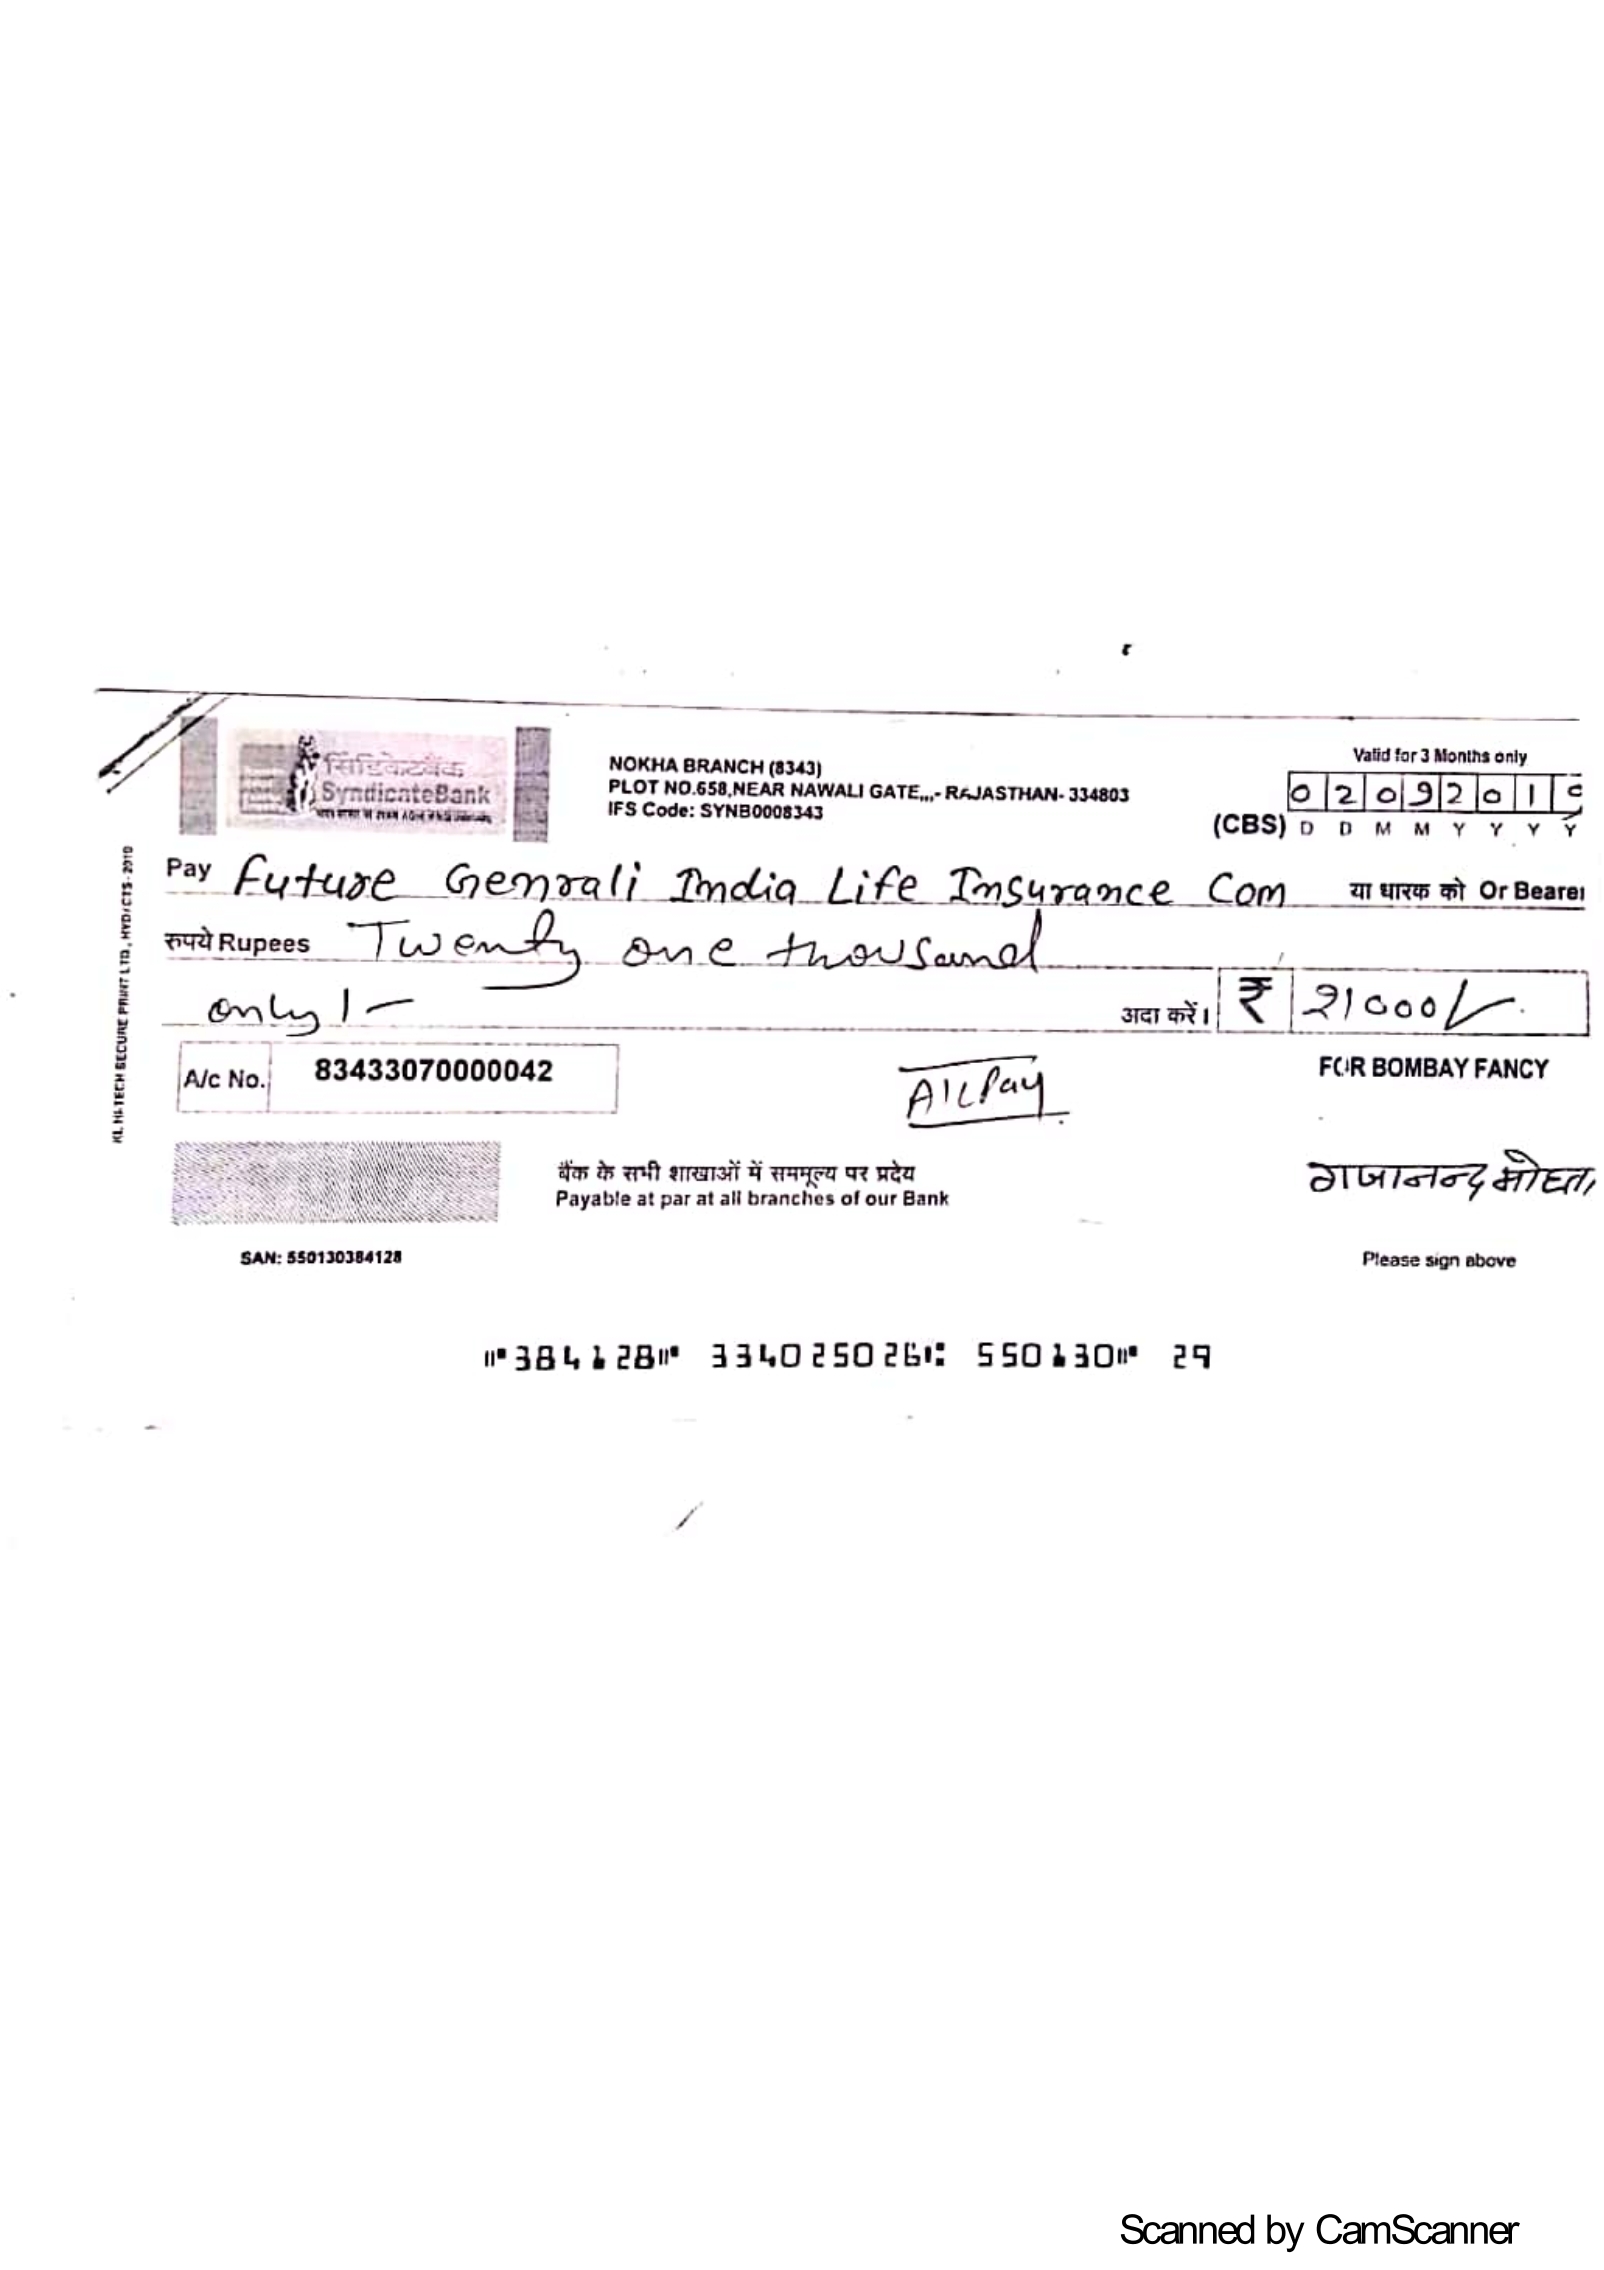 सिंडिकेटबैंक
SyndicateBank
NOKHA BRANCH (8343)
PLOT NO.658,NEAR NAWALI GATE,,,- RAJASTHAN- 334803
IFS Code: SYNB0008343
Valid for 3 Months only
0 2 0 9 2 0 1
(CBS) D D M M Y Y Y Y
Pay Future Genrali India Life Insurance Com या धारक को Or Bearer
रुपये Rupees Twenty one thousand
only /- अदा करें। ₹ 21000/-
A/c No. 83433070000042
A/c Pay
FOR BOMBAY FANCY
बैंक के सभी शाखाओं में सममूल्य पर प्रदेय
Payable at par at all branches of our Bank
गजानन्द
SAN: 550130384128
Please sign above
⑈384128⑈ 334025026⑆ 550130⑈ 29
KL HI-TECH SECURE PRINT LTD., HYD/CTS-2010
Scanned by CamScanner